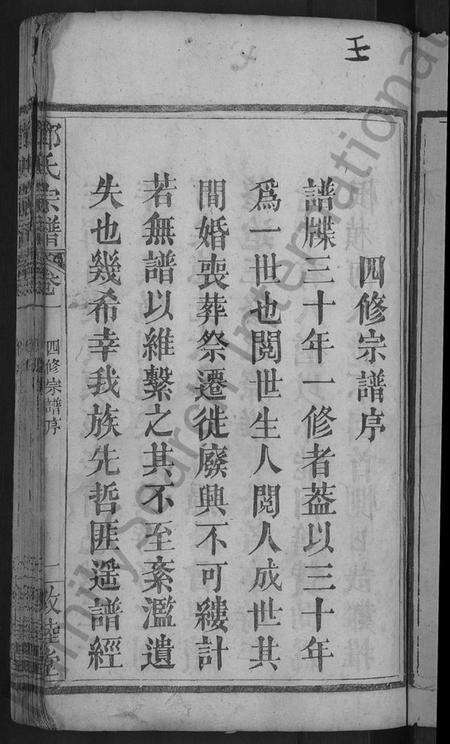 王
四修宗譜序
譜牒三十年一修者葢以三十年
爲一世也閱世生人閱人成世其
間婚喪葬祭遷徙廢興不可縷計
若無譜以維繫之其不至紊濫遺
失也幾希幸我族先哲匪遥譜經
氏宗譜
卷一
四修宗譜序
一
敦睦堂
International